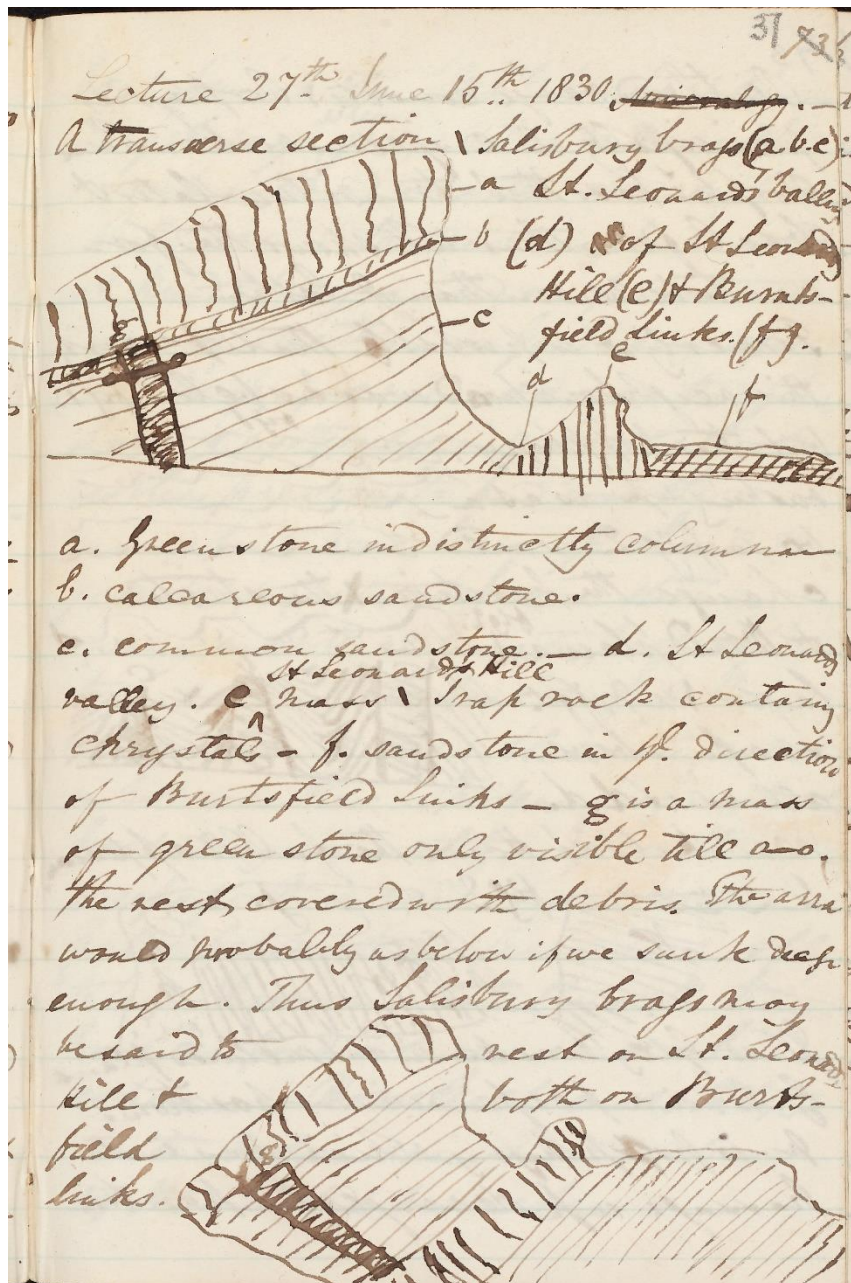 37 73½
Lecture 27th June 15th 1830 Mineralogy. —
A transverse section \ Salisbury Crags (a b c)
a St. Leonards' Valley
b (d) of St Leonards
Hill (e) & Burnts-
c field Links. (f g.
d e f
g
a. Greenstone indistinctly columnar
b. calcareous sandstone.
c. common sandstone. — d. St Leonards
St Leonards Hill
valley. e ^ mass \ Trap rock containg
chrystals — f. sandstone in ye. direction
of Burtsfield Links — g is a mass
of green stone only visible till a—o.
the rest covered with debris. The arra
would probably as below if we sunk deep
enough. Thus Salisbury Crags may
be said to rest on St. Leonards
Hill & both on Burts-
field
links.
g